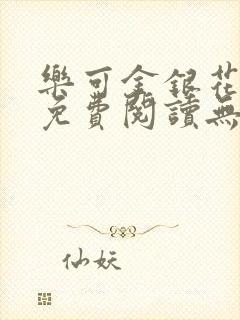 樂可金銀花
免費閱讀無
仙妖